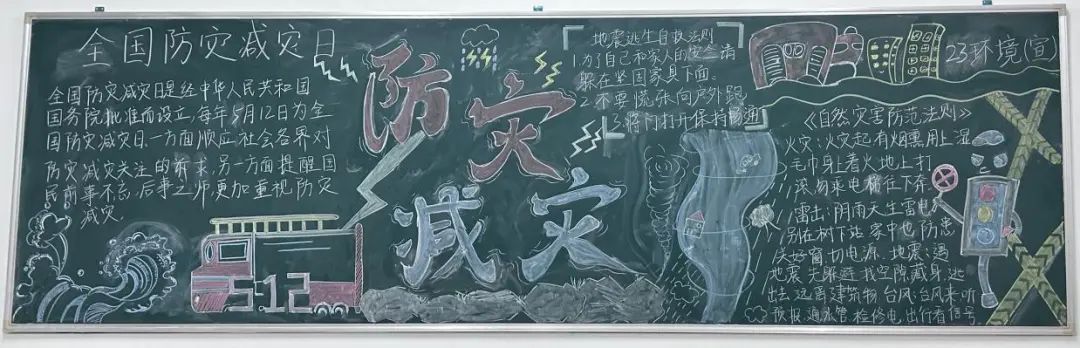 全国防灾减灾日
全国防灾减灾日是经中华人民共和国
国务院批准而设立,每年5月12日为全
国防灾减灾日.一方面顺应社会各界对
防灾减灾关注的需求,另一方面提醒国
民前事不忘,后事之师更加重视防灾
减灾.
5·12
防灾
减灾
地震逃生自救法则
1.为了自己和家人的安全请
躲在坚固家具下面。
2.不要慌张向户外跑
3.将门打开保持畅通
23环境(宣)
《自然灾害防范法则》
火灾:火灾起有烟熏用上湿
毛巾身上着火地上打
滚勿乘电梯往下奔
雷击:阴雨天生雷电
别在树下站家中也防患
关好窗切电源.地震:遇
地震先躲避找空隙藏身逃
出去远离建筑物台风:台风来听
预报通水管检修电出行看信号